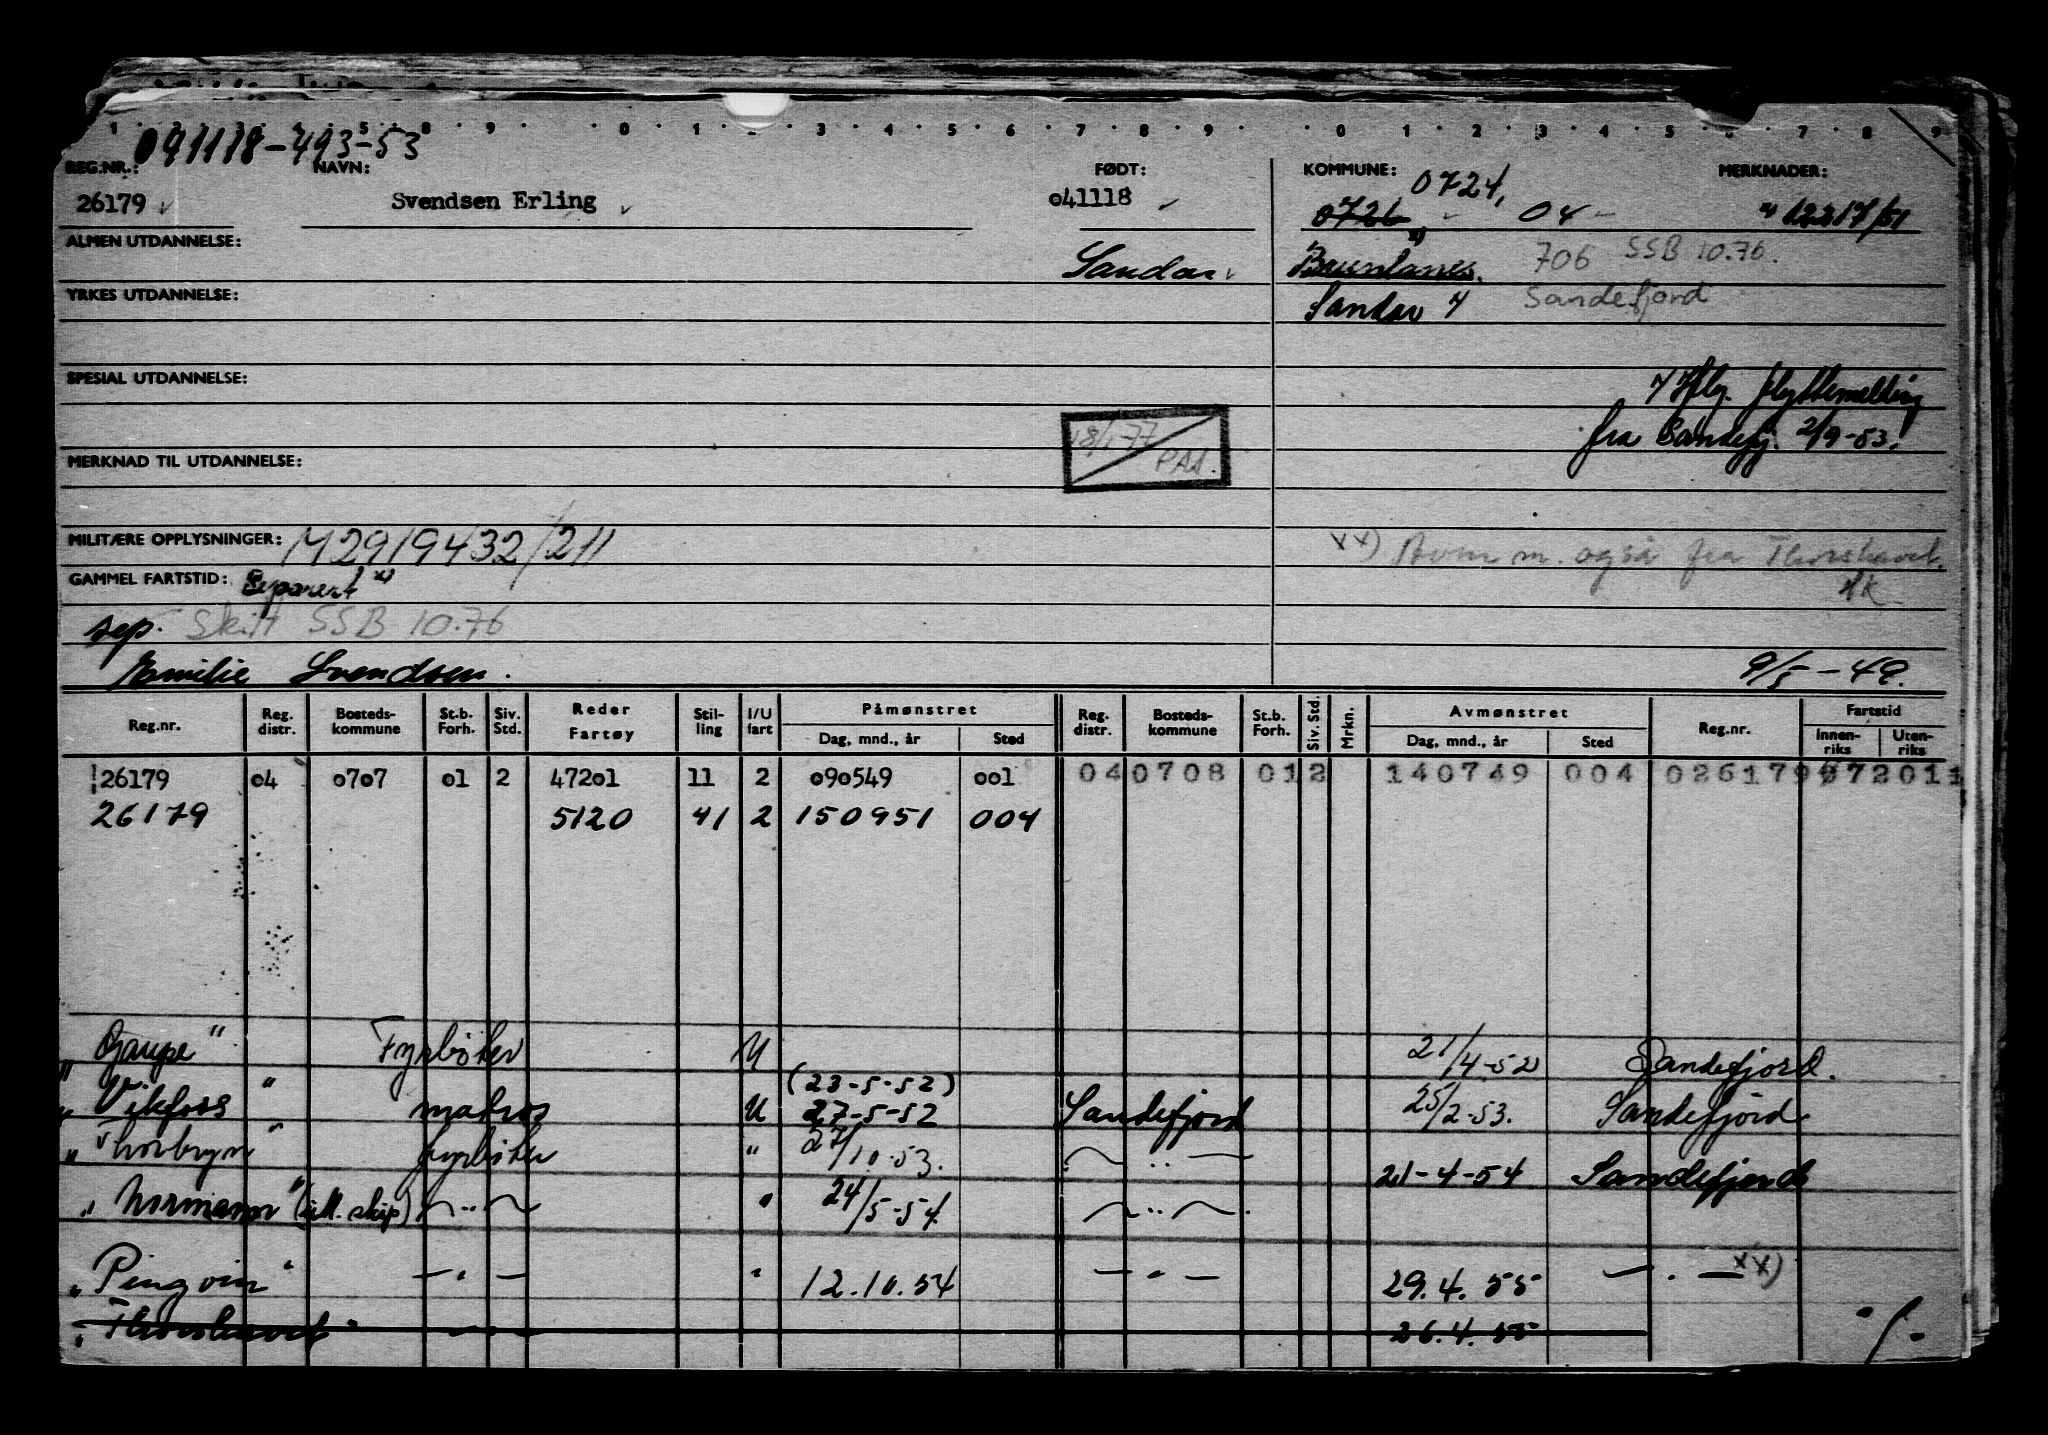 1 2 3 4 5 8 9 0 1 2 3 4 5 6 7 8 9 0 1 2 3 4 5 6 7 8 9
091118-493-53
REG.NR.: NAVN: FØDT: KOMMUNE: MERKNADER:
26179 Svendsen Erling 041118 0726 0724, 04- 12217/51
ALMEN UTDANNELSE: Sandar Brunlanes. 706 SSB 10.76.
YRKES UTDANNELSE: Sandar 4 Sandefjord
SPESIAL UTDANNELSE: flyttemelding
fra Sandefj. 2/9-53.
18/1-77 PAA.
MERKNAD TIL UTDANNELSE:
MILITÆRE OPPLYSNINGER: M2919432/211 xx) også fra Thorshavet.
GAMMEL FARTSTID: Separert x)
sep. Skilt SSB 10.76
Emilie Svendsen. 9/5-49.
Reg.nr. Reg. distr. Bosteds-kommune St.b. Forh. Siv. Std. Reder Fartøy Stil-ling I/U fart Påmønstret Dag, mnd., år Sted Reg. distr. Bosteds-kommune St.b. Forh. Siv. Std. Mrkn. Avmønstret Dag, mnd., år Sted Reg.nr. Fartstid Innen-riks Uten-riks
26179 04 0707 01 2 47201 11 2 090549 001 04 0708 01 2 140749 004 026179 072011
26179 5120 41 2 150951 004
"Gaupe" Fyrbøter U 21/4-52 Sandefjord.
(23-5-52)
"Vikfoss" matros U 27-5-52 Sandefjord 25/2-53. Sandefjord
"Thorbryn" fyrbøter " 27/10-53. -"- 21-4-54 Sandefjord
"Normann" (ill. skip) -"- " 24/5-54. -"-
"Pingvin" -"- " 12.10.54 -"- 29.4.55 -"- xx)
"Thorshavet" -"- 26.4.55